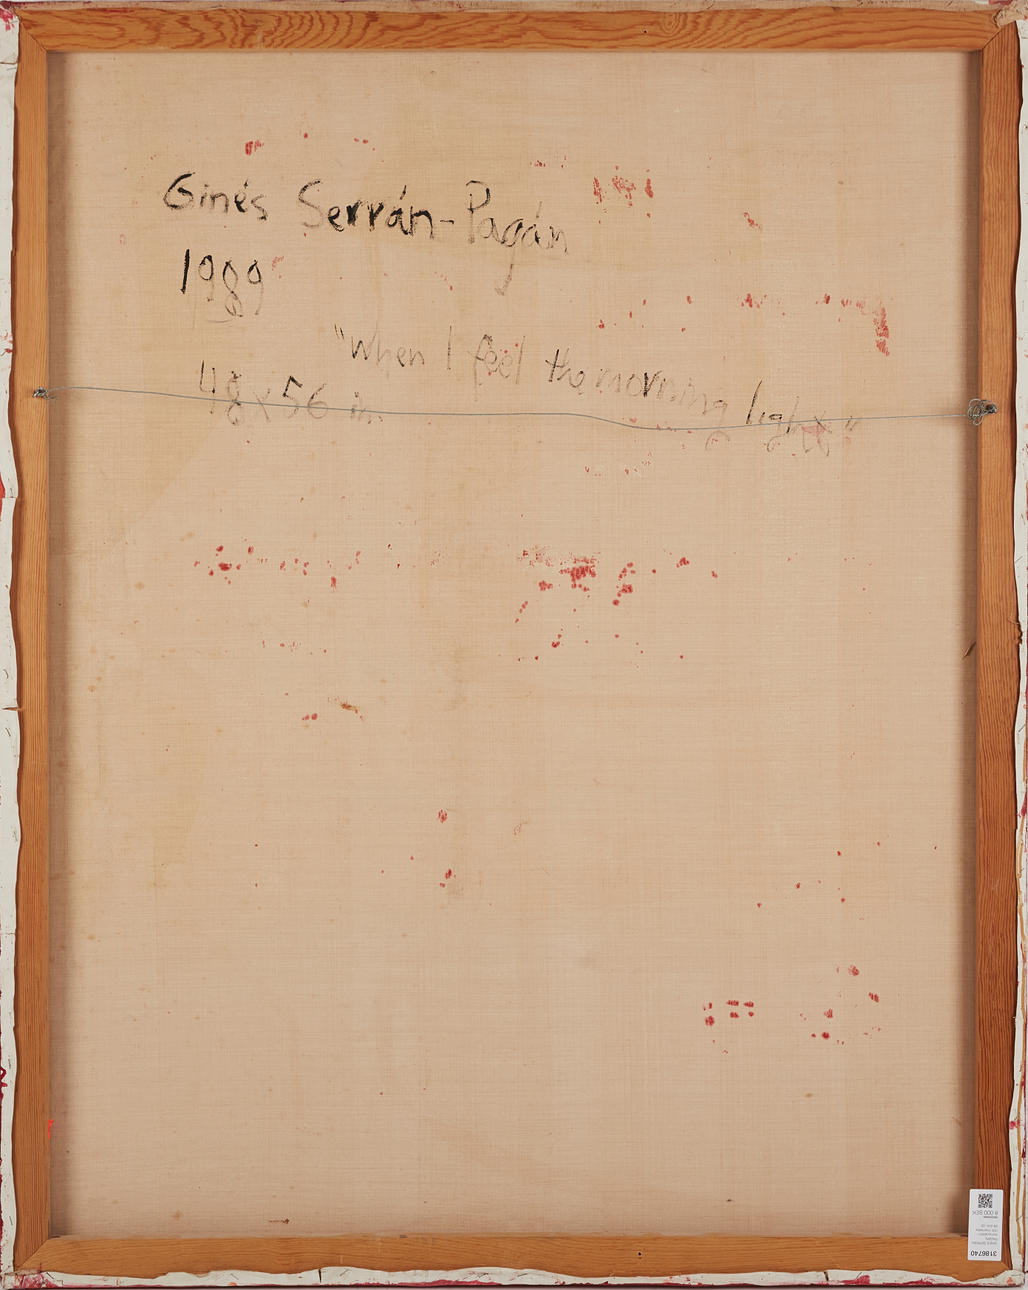 Ginés Serrán-Pagán
1989
"When I feel the morning light"
48 x 56 in.
3186740
6 000 SEK